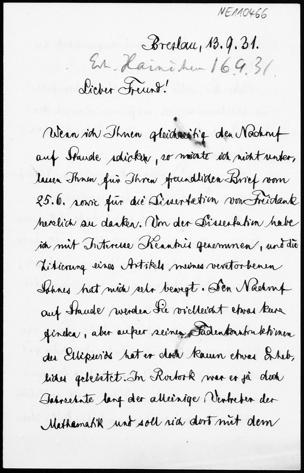 NE110466
Breslau, 13.9.31.
Erh. Hainichen 16.9.31.
Lieber Freund!
Wenn ich Ihnen gleichzeitig den Nachruf
auf Staude schicke, so möchte ich nicht unter-
lassen Ihnen für Ihren freundlichen Brief vom
25.6. sowie für die Dissertation von Freidank
herzlich zu danken. Von der Dissertation habe
ich mit Interesse Kenntnis genommen, und die
Zitierung eines Artikels meines verstorbenen
Sohnes hat mich sehr bewegt. Den Nachruf
auf Staude werden Sie vielleicht etwas kurz
finden, aber außer seinen Fadenkonstruktionen
des Ellipsoids hat er doch kaum etwas Erheb-
liches geleistet. In Rostock war er ja doch
Jahrzehnte lang der alleinige Vertreter der
Mathematik und soll sich dort mit dem